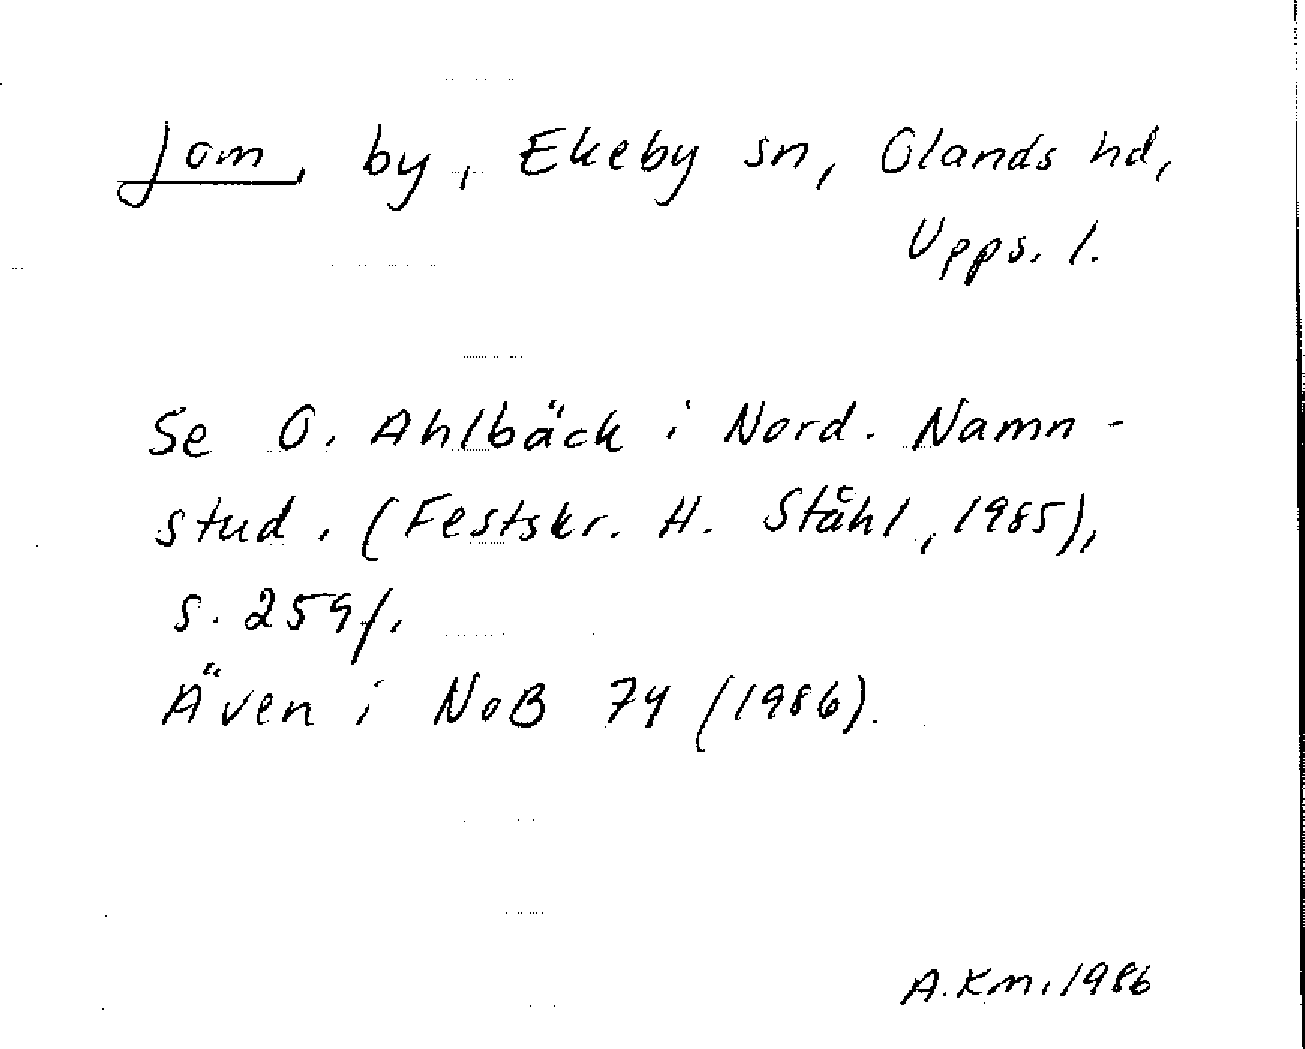 Jom, by, Ekeby sn, Olands hd,
Upps. l.
Se O. Ahlbäck i Nord. Namn-
stud. (Festskr. H. Ståhl, 1985),
s. 259f.
Även i NoB 74 (1986).
A.Km. 1986